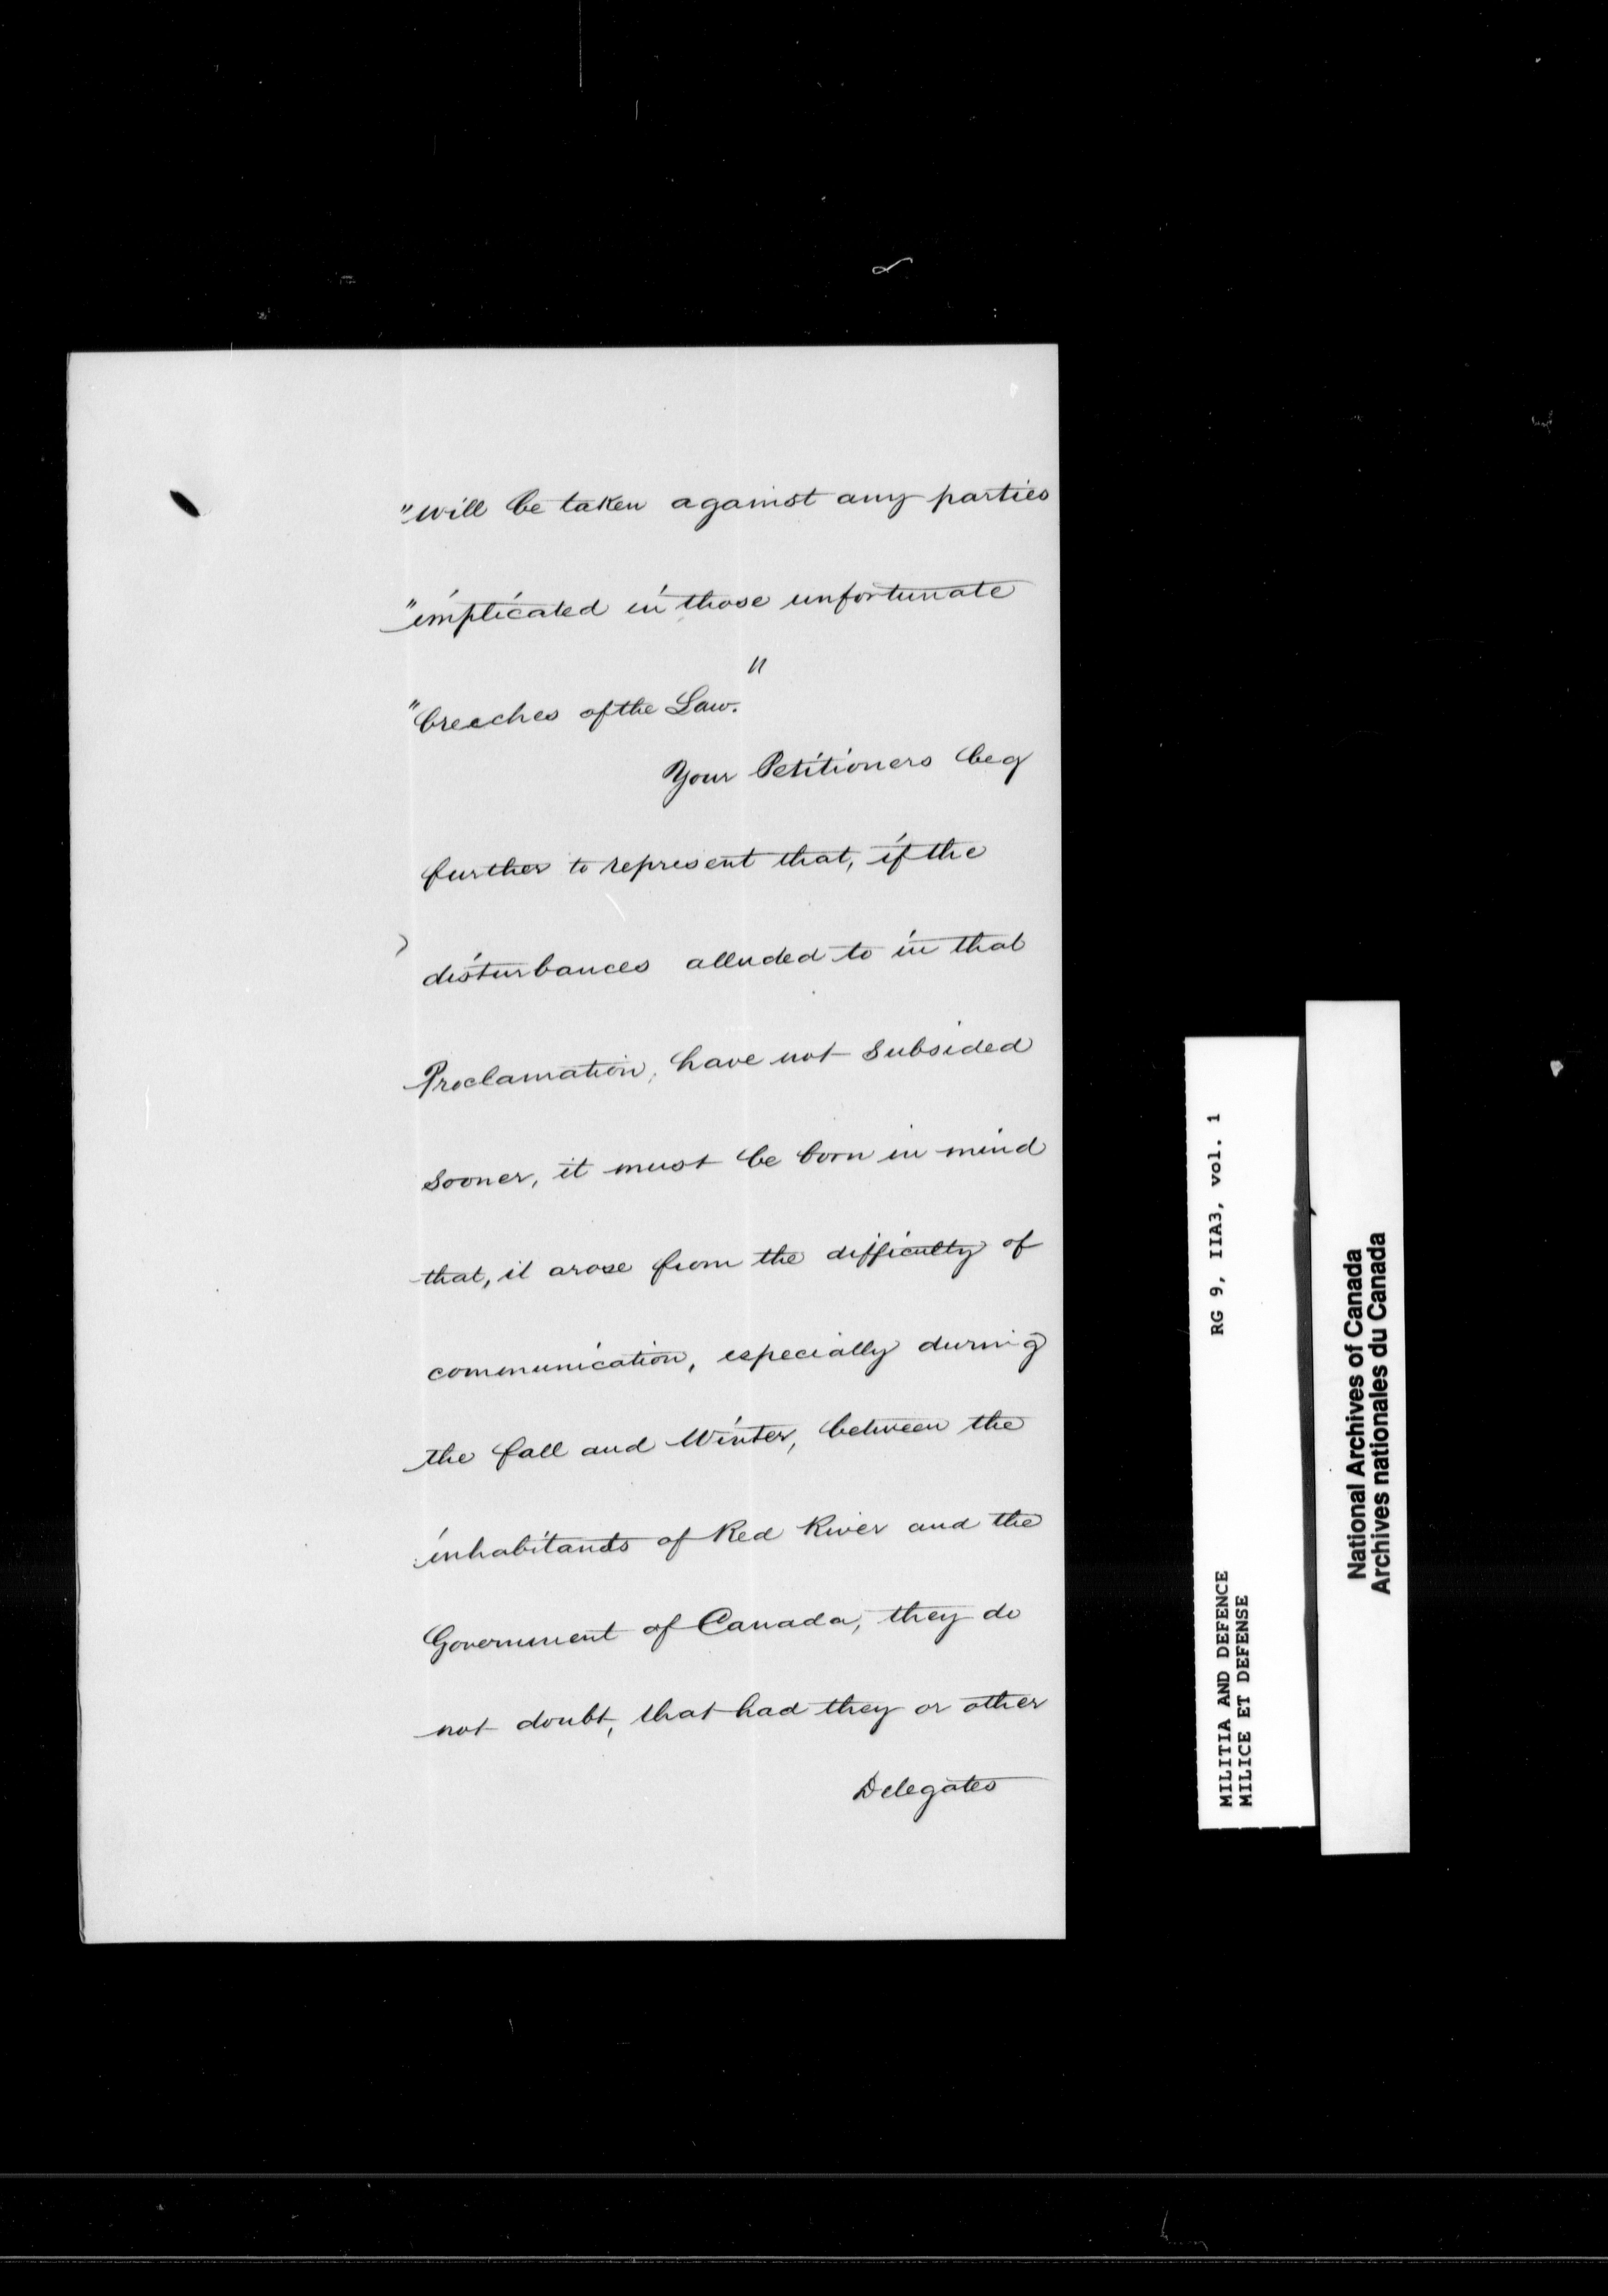 "Will be taken against any parties
"implicated in those unfortunate
"breeches of the Law."
Your Petitioners beg
further to represent that, if the
disturbances alluded to in that
Proclamation, have not subsided
sooner, it must be born in mind
that, it arose from the difficulty of
communication, especially during
the fall and Winter, between the
inhabitants of Red River and the
Government of Canada, they do
not doubt, that had they or other
Delegates
MILITIA AND DEFENCE RG 9, IIA3, vol. 1
MILICE ET DEFENSE
National Archives of Canada
Archives nationales du Canada